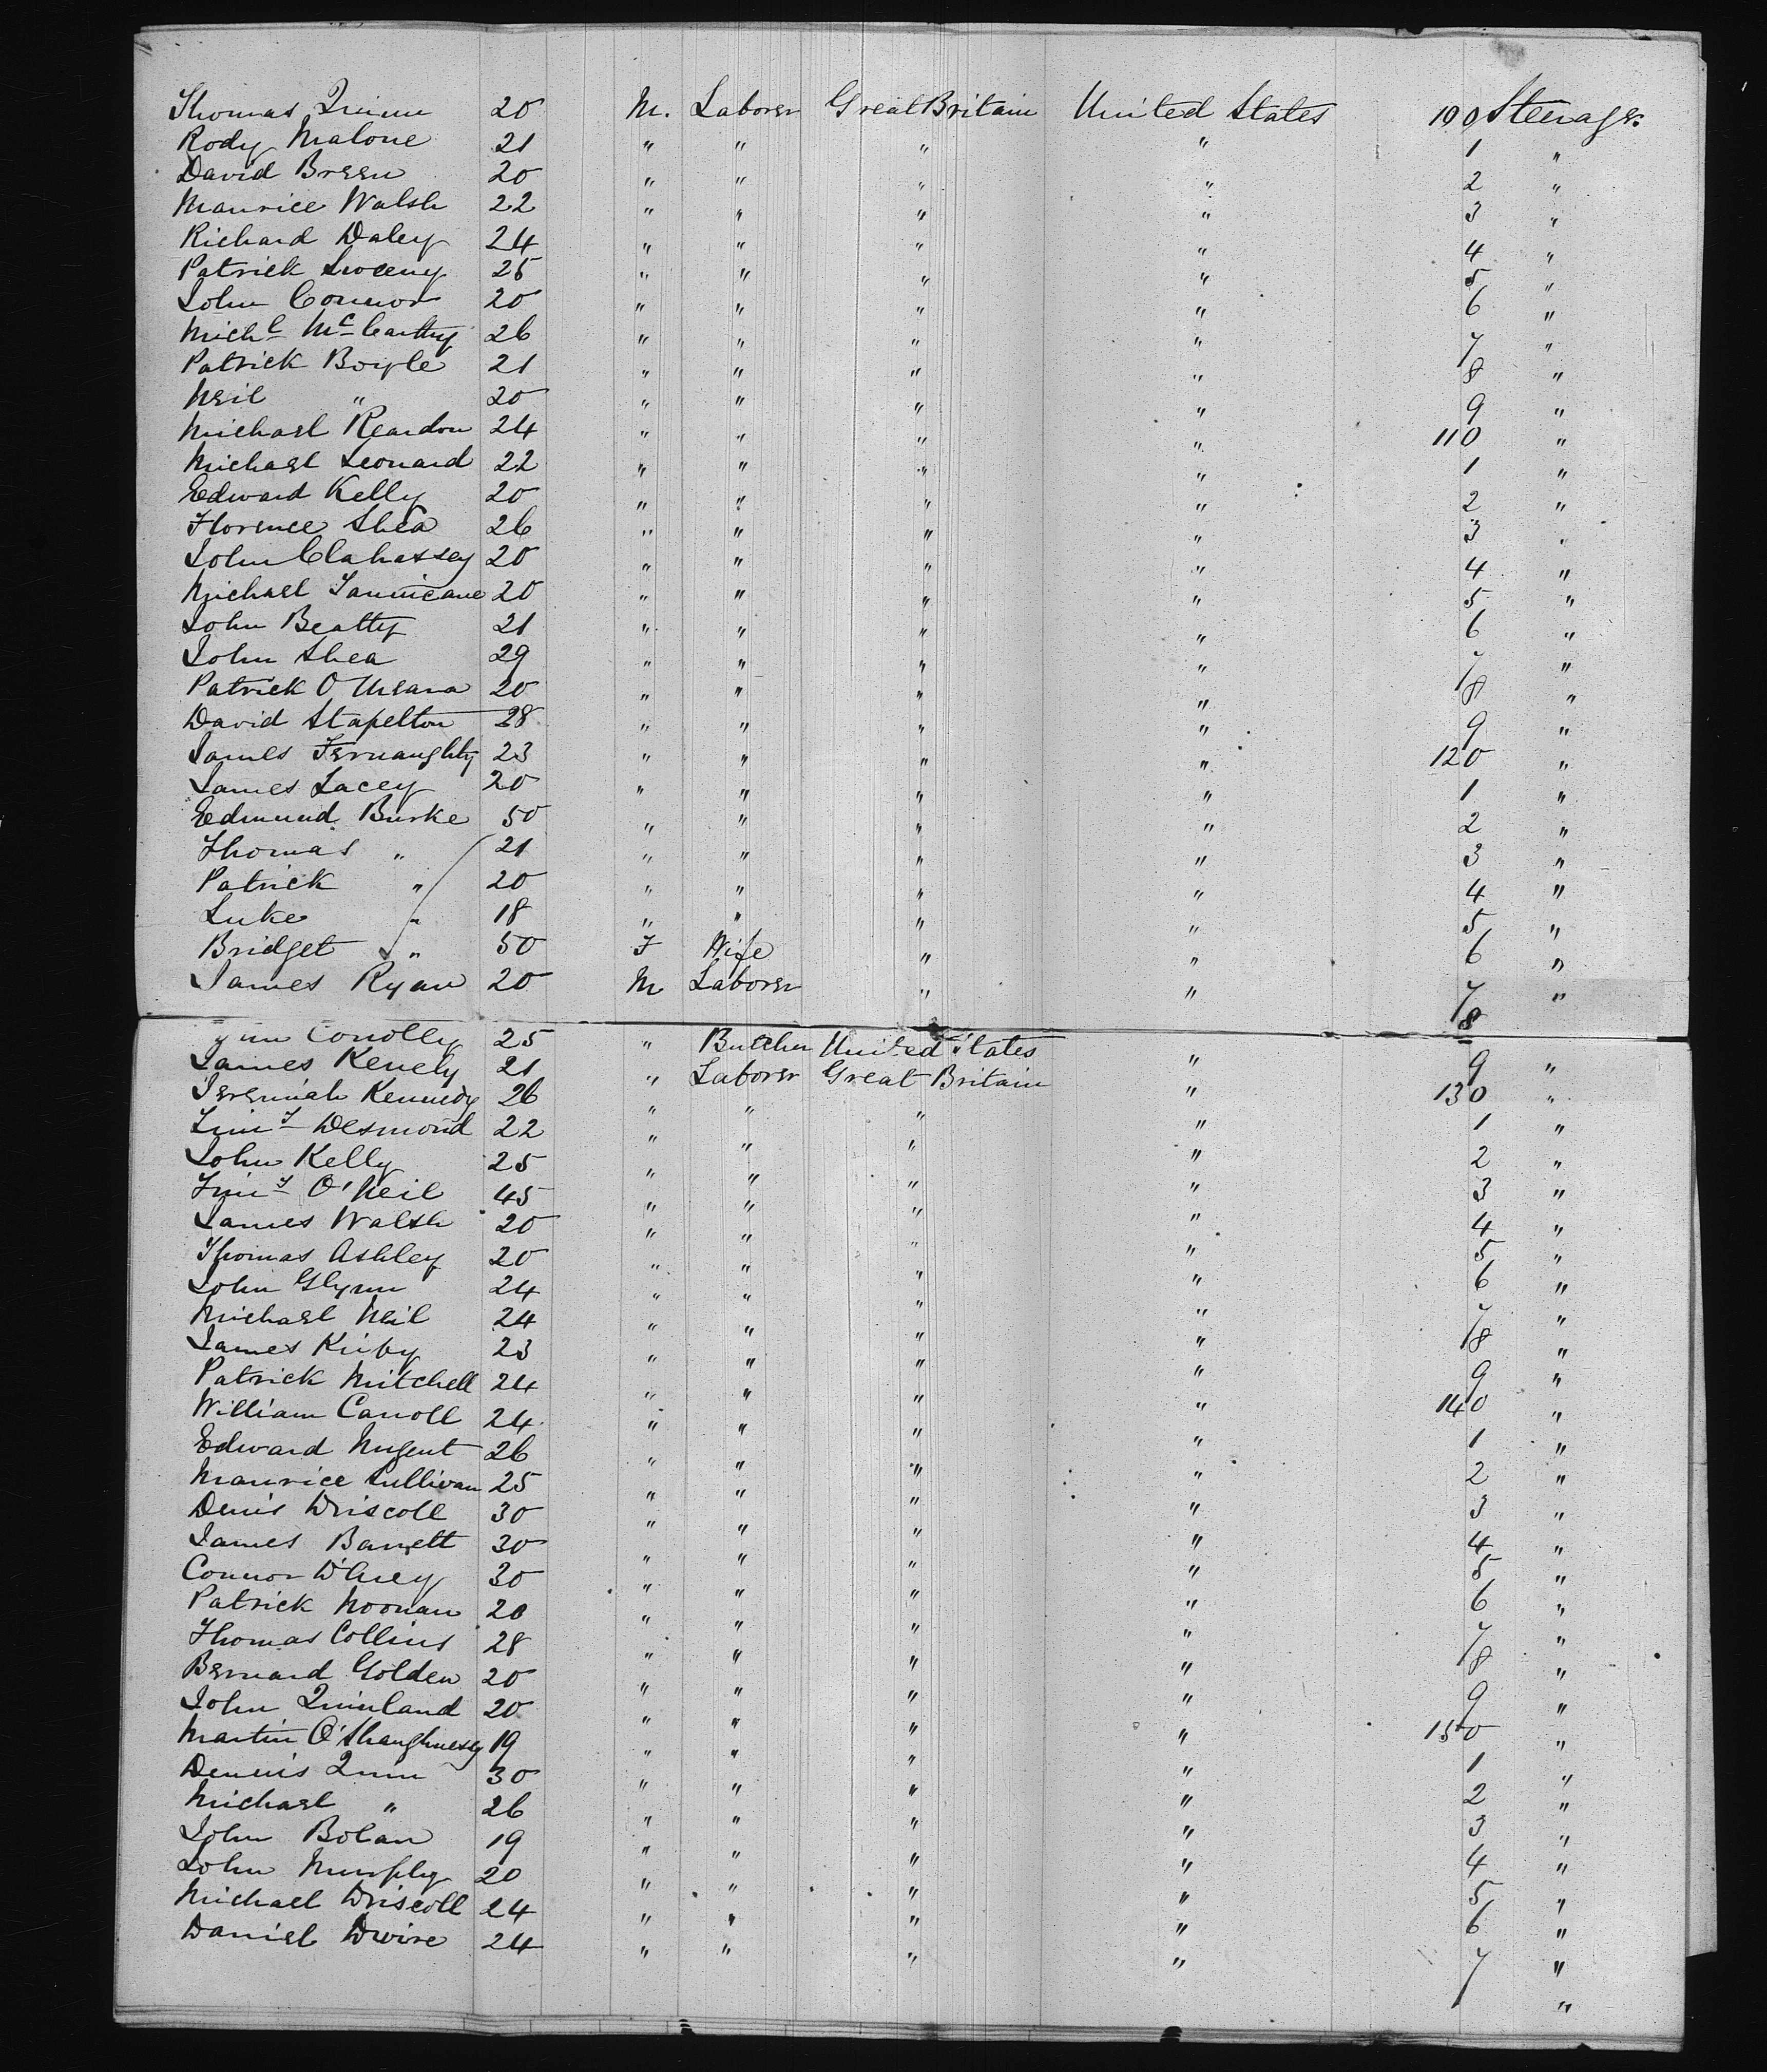 Thomas Quinn 20 M. Laborer Great Britain United States 100 Steerage
Rody Malone 21 " " " " 1 "
David Breen 20 " " " " 2 "
Maurice Walsh 22 " " " " 3 "
Richard Daley 24 " " " " 4 "
Patrick Sweeny 25 " " " " 5 "
John Connor 20 " " " " 6 "
Michl McCarthy 26 " " " " 7 "
Patrick Boyle 21 " " " " 8 "
Neil " 20 " " " " 9 "
Michael Reardon 24 " " " " 110 "
Michael Leonard 22 " " " " 1 "
Edward Kelly 20 " " " " 2 "
Florence Shea 26 " " " " 3 "
John Clahassey 20 " " " " 4 "
Michael 20 " " " " 5 "
John Beatty 21 " " " " 6 "
John Shea 29 " " " " 7 "
Patrick O'Meara 20 " " " " 8 "
David Stapelton 28 " " " " 9 "
James Fernaughty 23 " " " " 120 "
James Lacey 20 " " " " 1 "
Edmund Burke 50 " " " " 2 "
Thomas " 21 " " " " 3 "
Patrick " 20 " " " " 4 "
Luke " 18 " " " " 5 "
Bridget " 50 F Wife " " 6 "
James Ryan 20 M Laborer " " 7 "
Conolly 25 " Butcher United States " 8
James Kenely 21 " Laborer Great Britain " 9 "
Jeremiah Kennedy 26 " " " " 130 "
Timy Desmond 22 " " " " 1 "
John Kelly 25 " " " " 2 "
Timy O'Neil 45 " " " " 3 "
James Walsh 20 " " " " 4 "
Thomas Ashley 20 " " " " 5 "
John Glynn 24 " " " " 6 "
Michael Neil 24 " " " " 7 "
James Kirby 23 " " " " 8 "
Patrick Mitchell 24 " " " " 9 "
William Carroll 24 " " " " 140 "
Edward Nugent 26 " " " " 1 "
Maurice Sullivan 25 " " " " 2 "
Denis Driscoll 30 " " " " 3 "
James Barrett 30 " " " " 4 "
Connor 30 " " " " 5 "
Patrick Noonan 20 " " " " 6 "
Thomas Collins 28 " " " " 7 "
Bernard Golden 20 " " " " 8 "
John Quinland 20 " " " " 9 "
Martin O'Shaughnessy 19 " " " " 150 "
Dennis Quinn 30 " " " " 1 "
Michael " 26 " " " " 2 "
John Bolan 19 " " " " 3 "
John Murphy 20 " " " " 4 "
Michael Driscoll 24 " " " " 5 "
Daniel Dwire 24 " " " " 6 "
7 "
"